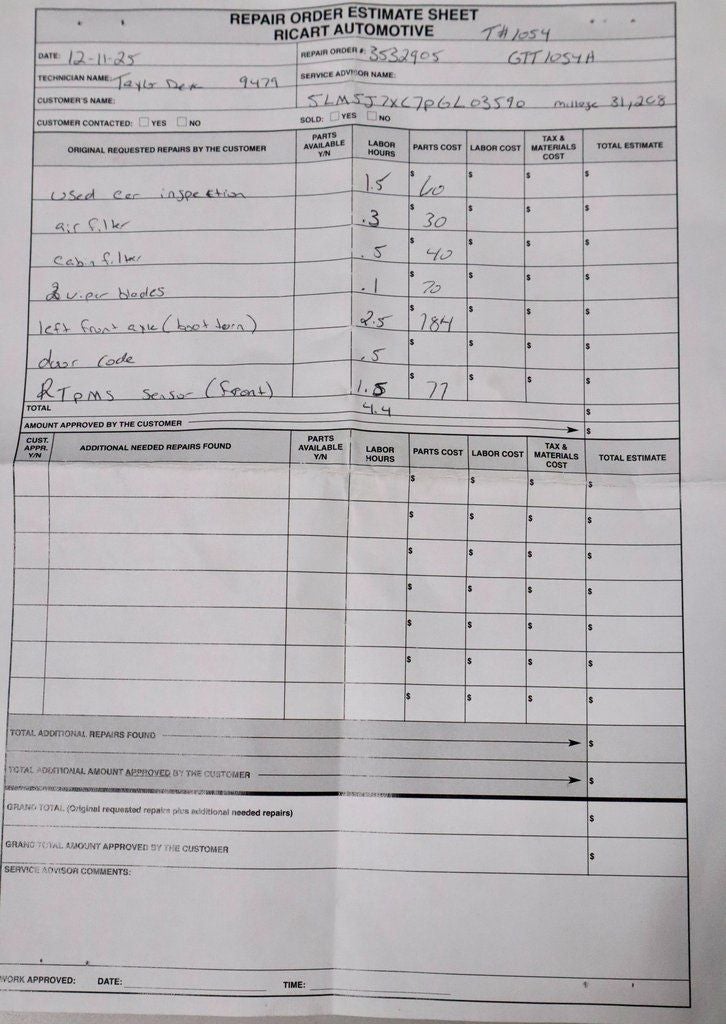 REPAIR ORDER ESTIMATE SHEET
RICART AUTOMOTIVE
T#1054
DATE: 12-11-25 REPAIR ORDER #: 3532905 GTT1054A
TECHNICIAN NAME: Taylor 9479 SERVICE ADVISOR NAME:
CUSTOMER'S NAME: 5LM5J7XC7PGL03590 millage 31,268
CUSTOMER CONTACTED: YES NO SOLD: YES NO
ORIGINAL REQUESTED REPAIRS BY THE CUSTOMER PARTS AVAILABLE Y/N LABOR HOURS PARTS COST LABOR COST TAX & MATERIALS COST TOTAL ESTIMATE
used car inspection 1.5 $ 60 $ $ $
air filter .3 $ 30 $ $ $
cabin filter .5 $ 40 $ $ $
2 wiper blades .1 $ 70 $ $ $
left front axle (boot torn) 2.5 $ 184 $ $ $
door code .5 $ $ $ $
R TPMS sensor (front) 1.5 $ 77 $ $ $
TOTAL 4.4 $
AMOUNT APPROVED BY THE CUSTOMER $
CUST. APPR. Y/N ADDITIONAL NEEDED REPAIRS FOUND PARTS AVAILABLE Y/N LABOR HOURS PARTS COST LABOR COST TAX & MATERIALS COST TOTAL ESTIMATE
$ $ $ $
$ $ $ $
$ $ $ $
$ $ $ $
$ $ $ $
$ $ $ $
$ $ $ $
TOTAL ADDITIONAL REPAIRS FOUND $
TOTAL ADDITIONAL AMOUNT APPROVED BY THE CUSTOMER $
GRAND TOTAL (Original requested repairs plus additional needed repairs) $
GRAND TOTAL AMOUNT APPROVED BY THE CUSTOMER $
SERVICE ADVISOR COMMENTS:
WORK APPROVED: DATE: TIME: